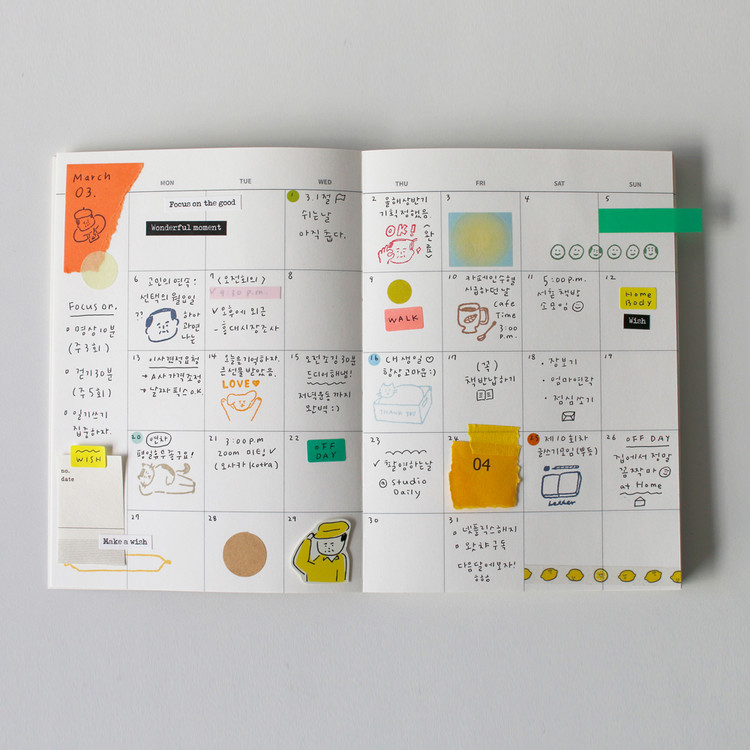 March
03.
MON
TUE
WED
THU
FRI
SAT
SUN
Focus on the good
Wonderful moment
1
3.1절
쉬는날
아직 춥다.
2
올해상반기
기획정했음.
OK!
<완료>
3
4
5
Focus on.
영상10분
(주3회)
걷기30분
(주5회)
일기쓰기
집중하자.
6
고민의 연속!
선택의 월요일
??
하아
과연
나는
7
(오전회의)
✓ 4:30 p.m.
✓ 오후에 외근
홍대시장조사
8
9
WALK
10
카페인수혈
시급하던날
cafe
Time
3:00
p.m.
11
5:00 p.m.
서촌 책방
소모임
12
HOME
BODY
Wish
13
이사견적요청
→ A사가격조정
→ 날짜픽스OK
14
오늘을기억하자.
큰선물받았음.
LOVE♥
15
오전조깅30분
드디어해냄!
저녁운동까지
완벽 :)
16
내생일♡
항상고마운:)
THANK YOU
17
(꼭)
책반납하기
18
• 장보기
• 엄마연락
• 점심쏘기
19
WISH
no.
date
20
연차
평일휴무좋구요!
21
3:00 p.m
zoom 미팅 ✓
(오사카 Kotra)
22
OFF
DAY
23
✓ 촬영하는날
@ studio
Daily
24
04
25
제10회차
글쓰기모임(뿌듯)
Letter
26
OFF DAY
집에서 정말
꼼짝마
at Home
Make a wish
27
28
29
30
31
넷플릭스해지
왓챠구독
다음달에보자!